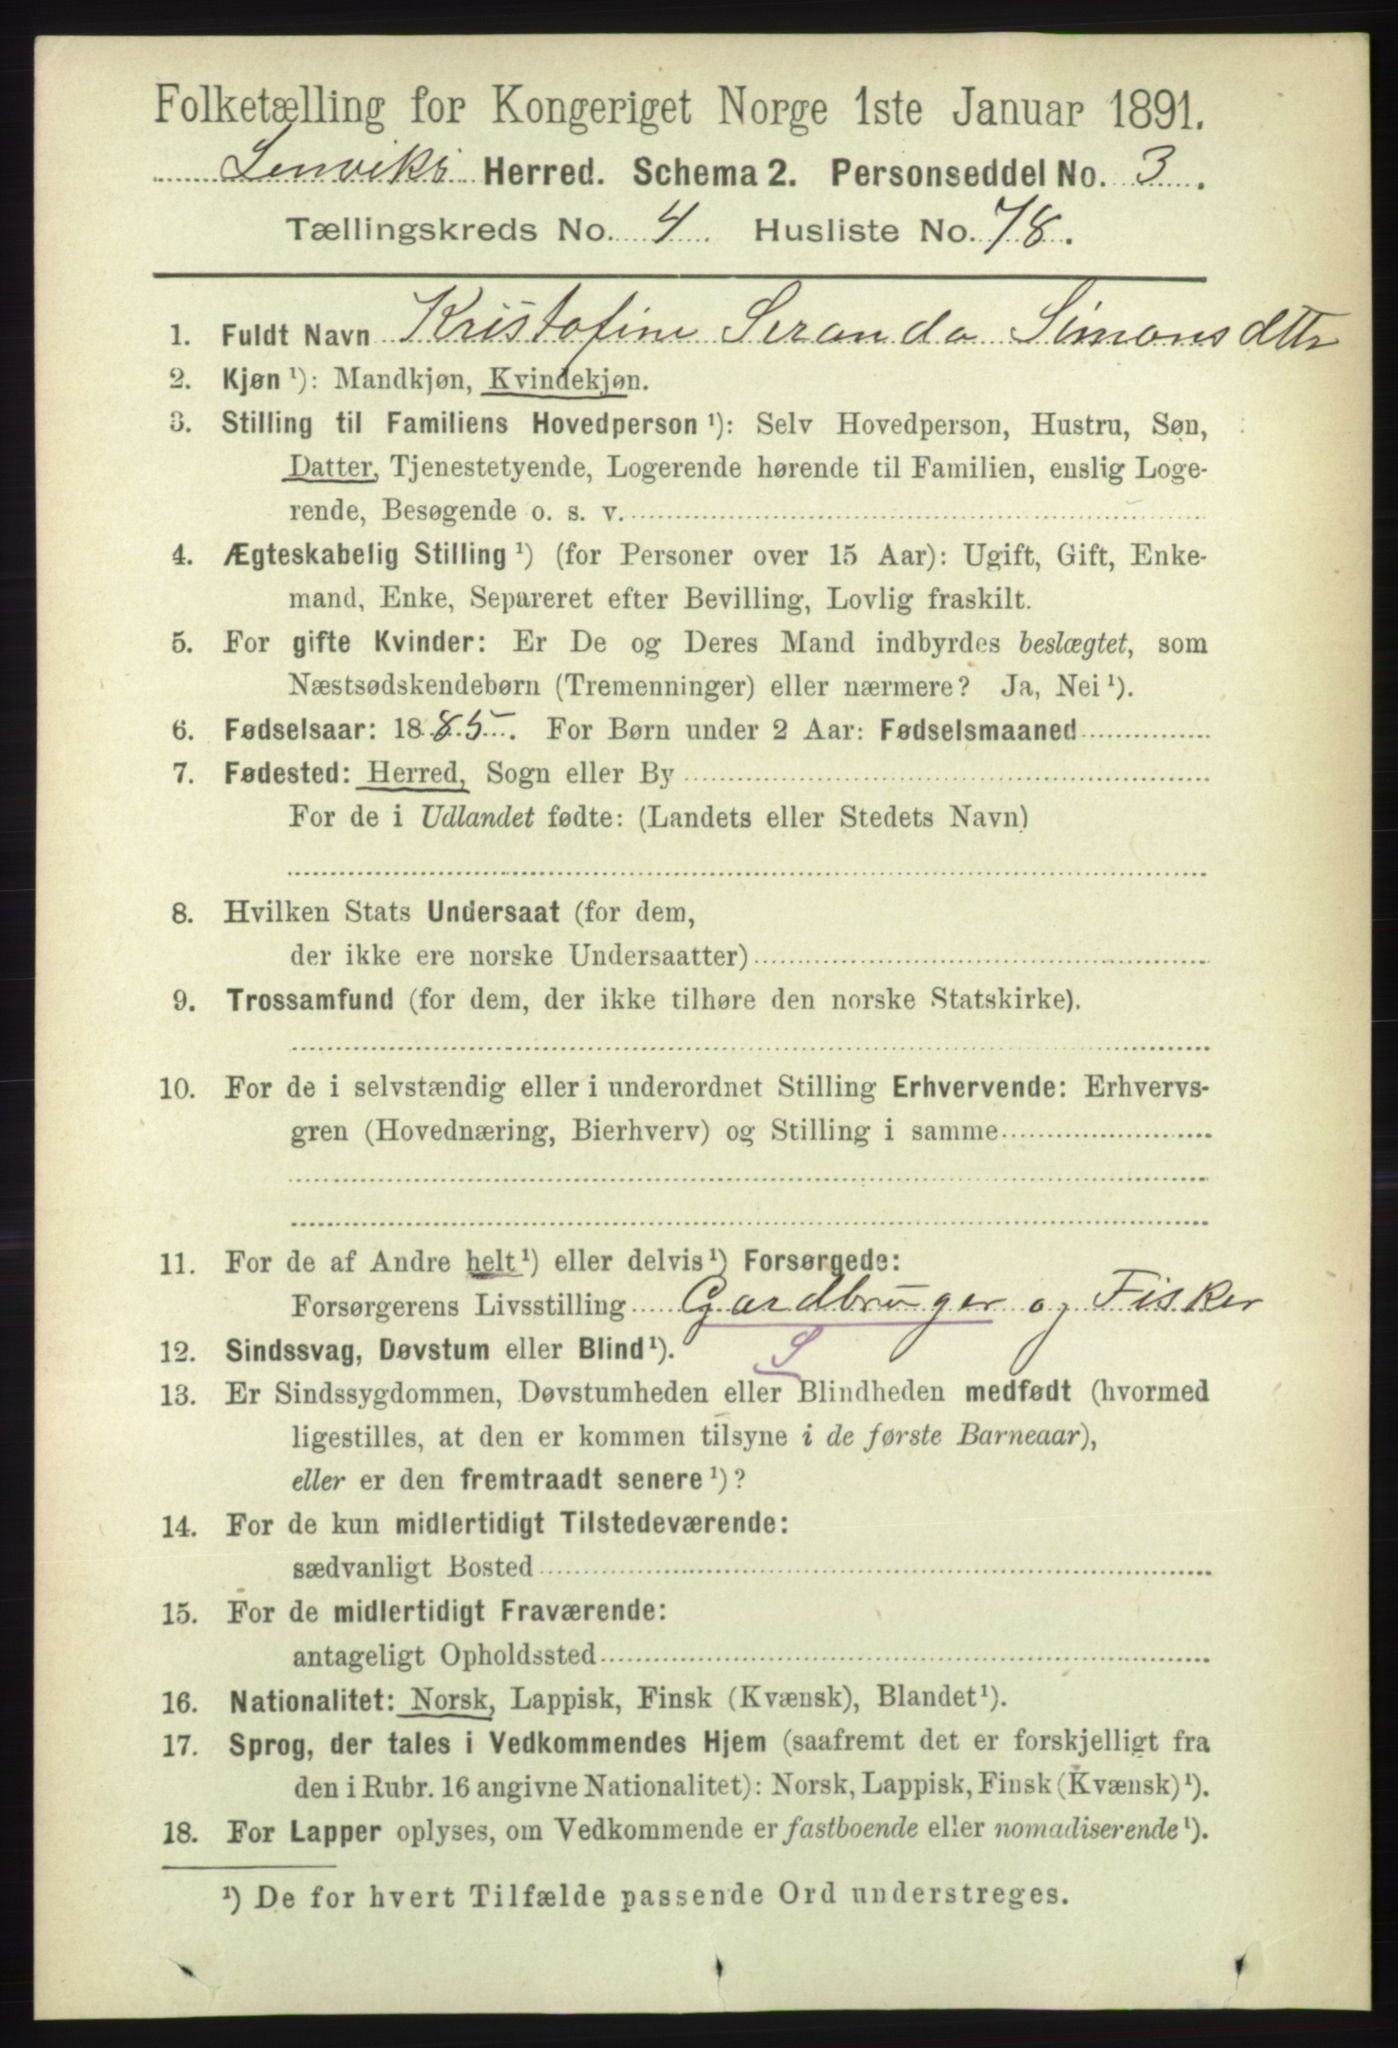 Folketælling for Kongeriget Norge 1ste Januar 1891.
Lenviks Herred. Schema 2. Personseddel No. 3.
Tællingskreds No. 4 Husliste No. 78.
1. Fuldt Navn Kristofine Seranda Simonsdttr
2. Kjøn ¹): Mandkjøn, Kvindekjøn.
3. Stilling til Familiens Hovedperson ¹): Selv Hovedperson, Hustru, Søn,
Datter, Tjenestetyende, Logerende hørende til Familien, enslig Loge-
rende, Besøgende o. s. v.
4. Ægteskabelig Stilling ¹) (for Personer over 15 Aar): Ugift, Gift, Enke-
mand, Enke, Separeret efter Bevilling, Lovlig fraskilt.
5. For gifte Kvinder: Er De og Deres Mand indbyrdes beslægtet, som
Næstsødskendebørn (Tremenninger) eller nærmere? Ja, Nei ¹).
6. Fødselsaar: 1885. For Børn under 2 Aar: Fødselsmaaned
7. Fødested: Herred, Sogn eller By
For de i Udlandet fødte: (Landets eller Stedets Navn)
8. Hvilken Stats Undersaat (for dem,
der ikke ere norske Undersaatter)
9. Trossamfund (for dem, der ikke tilhøre den norske Statskirke).
10. For de i selvstændig eller i underordnet Stilling Erhvervende: Erhvervs-
gren (Hovednæring, Bierhverv) og Stilling i samme
11. For de af Andre helt ¹) eller delvis ¹) Forsørgede:
Forsørgerens Livsstilling Gardbruger og Fisker
12. Sindssvag, Døvstum eller Blind ¹). S
13. Er Sindssygdommen, Døvstumheden eller Blindheden medfødt (hvormed
ligestilles, at den er kommen tilsyne i de første Barneaar),
eller er den fremtraadt senere ¹)?
14. For de kun midlertidigt Tilstedeværende:
sædvanligt Bosted
15. For de midlertidigt Fraværende:
antageligt Opholdssted
16. Nationalitet: Norsk, Lappisk, Finsk (Kvænsk), Blandet ¹).
17. Sprog, der tales i Vedkommendes Hjem (saafremt det er forskjelligt fra
den i Rubr. 16 angivne Nationalitet): Norsk, Lappisk, Finsk (Kvænsk) ¹).
18. For Lapper oplyses, om Vedkommende er fastboende eller nomadiserende ¹).
¹) De for hvert Tilfælde passende Ord understreges.